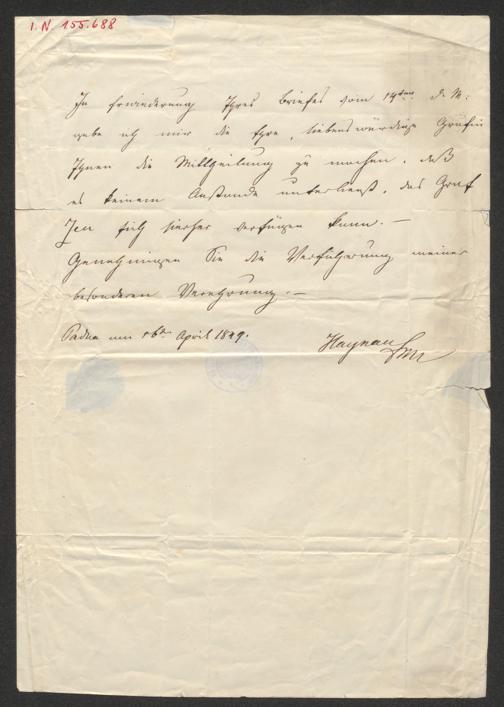 I. N. 155.688
In Erwiederung Ihres Briefes vom 14ten d. M:
gebe ich mir die Ehre, liebenswürdige Gräfin
Ihnen die Mittheilung zu machen, daß
es keinem Anstande unterliegt, das Graf
sich hierher verfügen kann.—
Genehmigen Sie die Versicherung meiner
besonderen Verehrung.—
Padua am 16ten April 1849.
Haynau FML